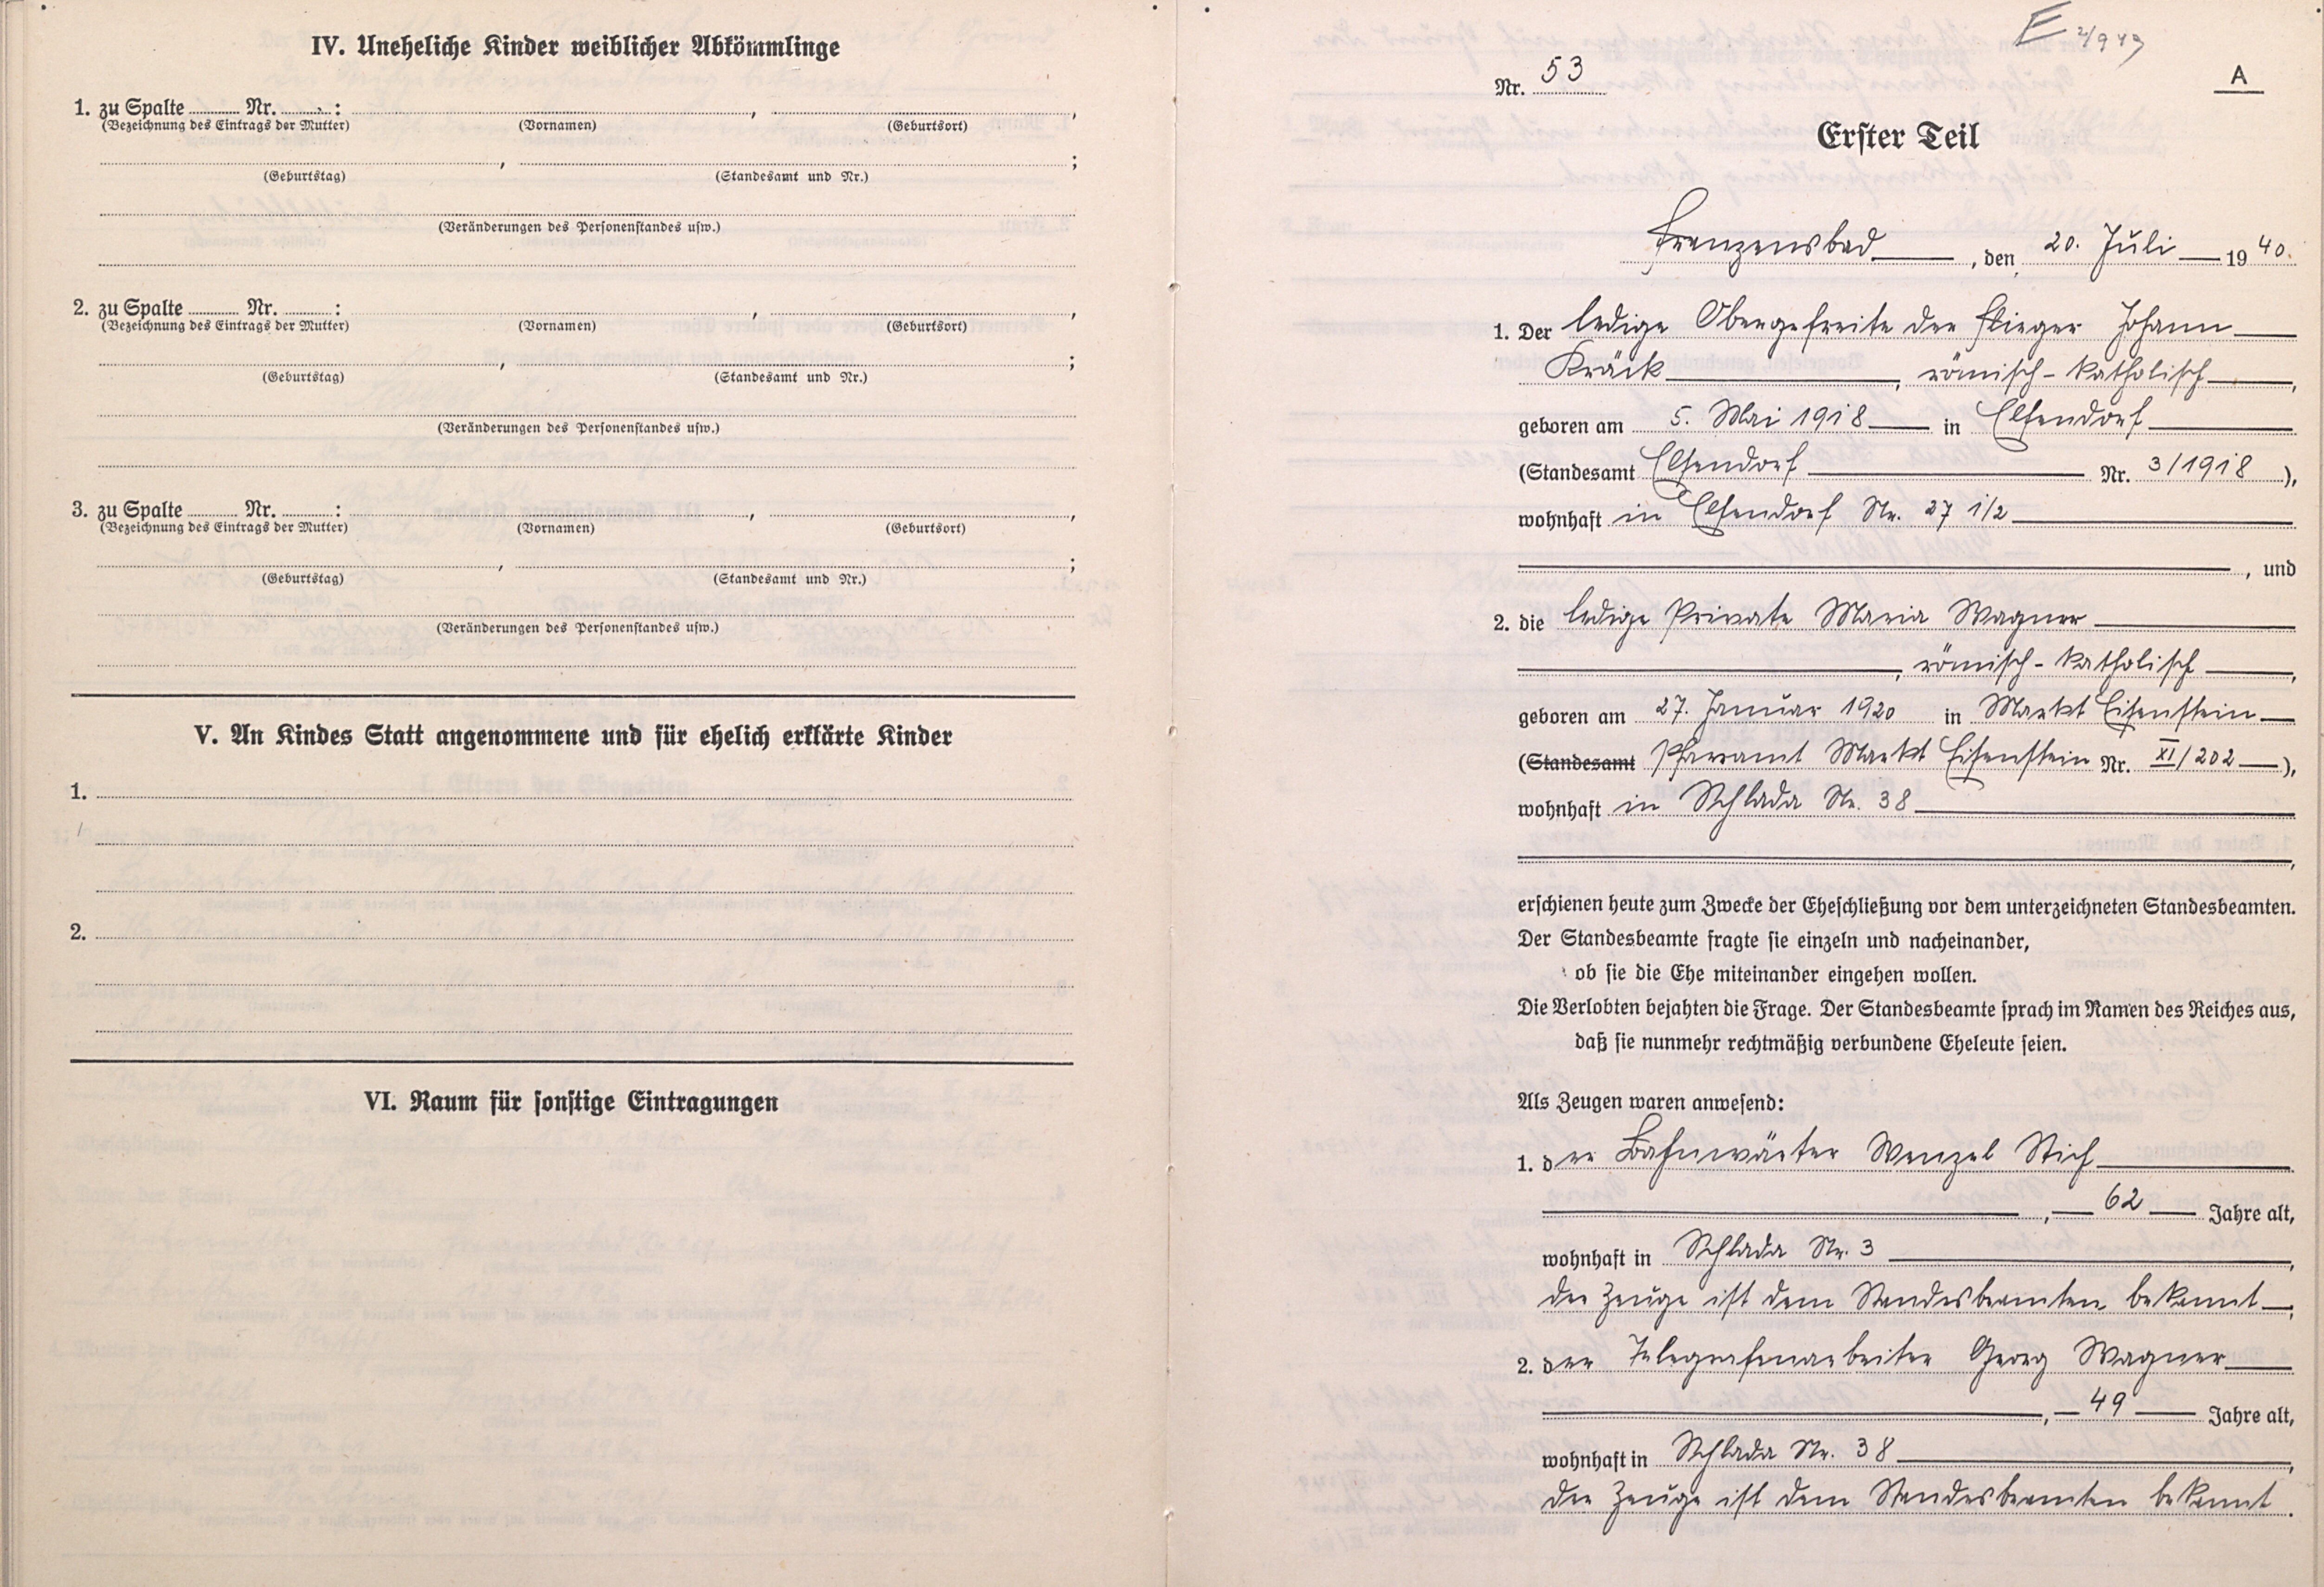 IV. Uneheliche Kinder weiblicher Abkömmlinge
1. zu Spalte ........ Nr. ........ : ........ , ........ ,
(Bezeichnung des Eintrags der Mutter) (Vornamen) (Geburtsort)
........ , ........ ;
(Geburtstag) (Standesamt und Nr.)
(Veränderungen des Personenstandes usw.)
2. zu Spalte ........ Nr. ........ : ........ , ........ ,
(Bezeichnung des Eintrags der Mutter) (Vornamen) (Geburtsort)
........ , ........ ;
(Geburtstag) (Standesamt und Nr.)
(Veränderungen des Personenstandes usw.)
3. zu Spalte ........ Nr. ........ : ........ , ........ ,
(Bezeichnung des Eintrags der Mutter) (Vornamen) (Geburtsort)
........ , ........ ;
(Geburtstag) (Standesamt und Nr.)
(Veränderungen des Personenstandes usw.)
V. An Kindes Statt angenommene und für ehelich erklärte Kinder
1.
2.
VI. Raum für sonstige Eintragungen
E
Nr. 53
A
Erster Teil
Franzensbad, den 20. Juli 1940.
1. Der ledige Obergefreite der Flieger Johann
Kräck, römisch-katholisch,
geboren am 5. Mai 1918 in Elsendorf
(Standesamt Elsendorf Nr. 3/1918),
wohnhaft in Elsendorf Nr. 27 1/2
, und
2. die ledige Private Maria Wagner
, römisch-katholisch,
geboren am 27. Januar 1920 in Markt Eisenstein
(Standesamt Pfarramt Markt Eisenstein Nr. XI/202),
wohnhaft in Schlada Nr. 38
,
erschienen heute zum Zwecke der Eheschließung vor dem unterzeichneten Standesbeamten.
Der Standesbeamte fragte sie einzeln und nacheinander,
ob sie die Ehe miteinander eingehen wollen.
Die Verlobten bejahten die Frage. Der Standesbeamte sprach im Namen des Reiches aus,
daß sie nunmehr rechtmäßig verbundene Eheleute seien.
Als Zeugen waren anwesend:
1. der Bahnwärter Wenzel Stich
, 62 Jahre alt,
wohnhaft in Schlada Nr. 3,
der Zeuge ist dem Standesbeamten bekannt;
2. der Telegrafenarbeiter Georg Wagner
, 49 Jahre alt,
wohnhaft in Schlada Nr. 38,
der Zeuge ist dem Standesbeamten bekannt.